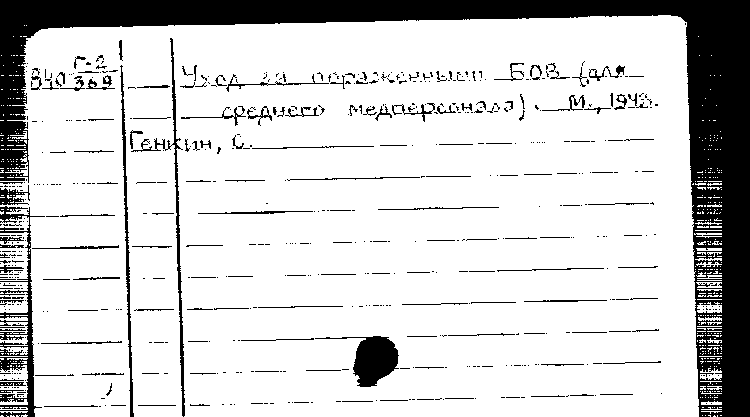 Г-2
840 369 Уход за пораженными БОВ (для
среднего медперсонала). М., 1943.
Генкин, С.